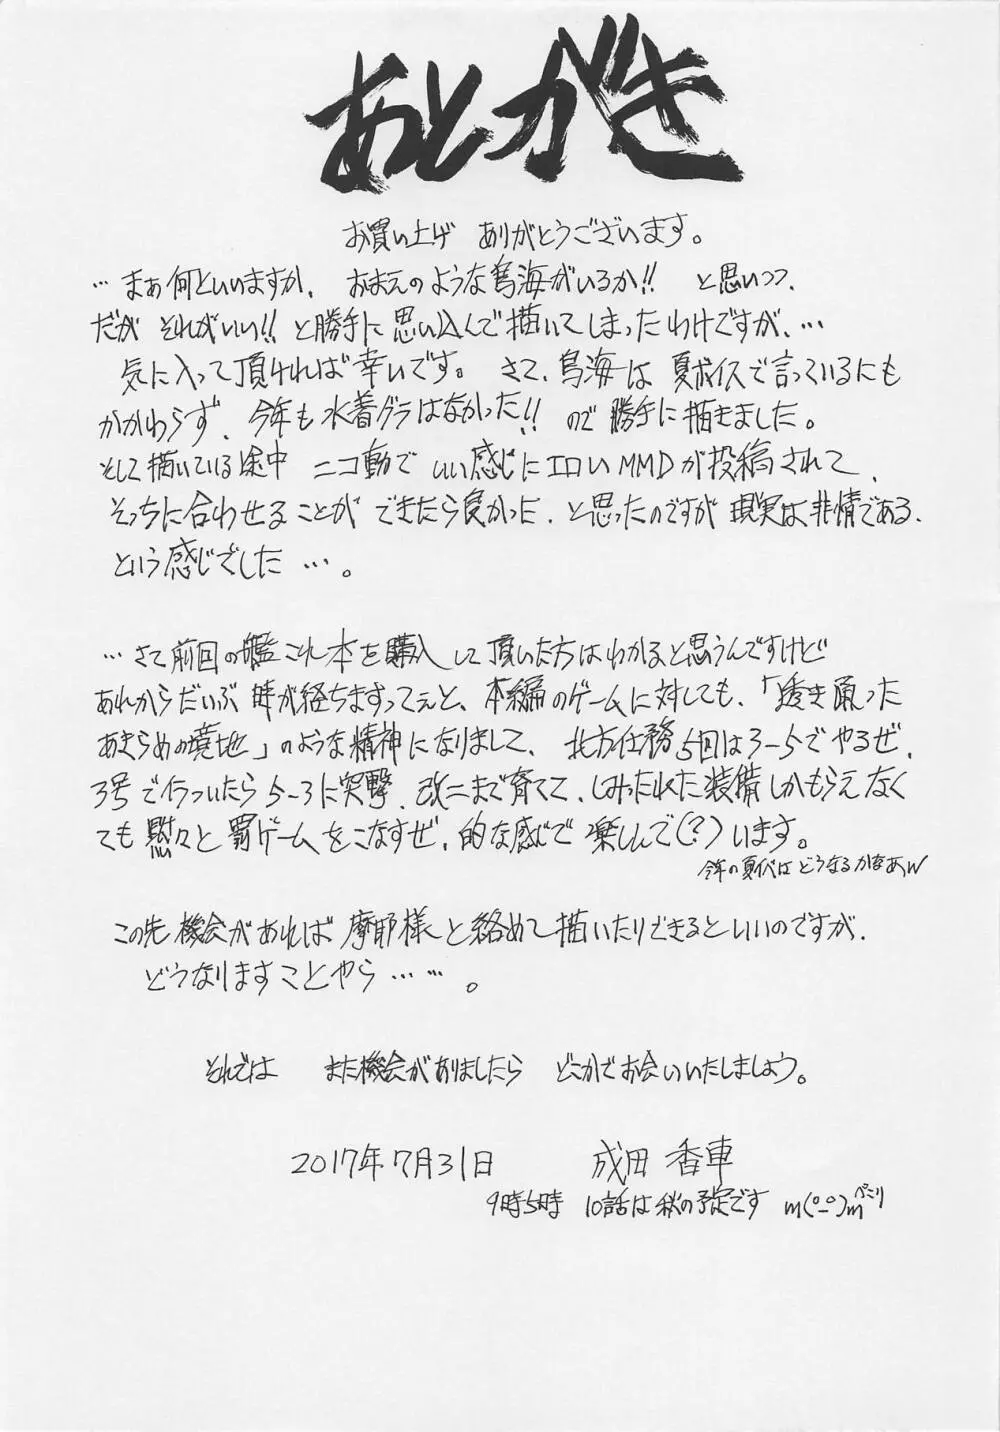 あとがき
お買い上げ ありがとうございます。
…まぁ何といいますか、おまえのような鳥海がいるか!! と思いつつ、
だが それがいい!! と勝手に思い込んで描いてしまったわけですが、…
気に入って頂ければ幸いです。さて、鳥海は夏ボイスで言っているにも
かかわらず、今年も水着グラはなかった!! ので勝手に描きました。
そして描いている途中 ニコ動で いい感じにエロいMMDが投稿されて、
そっちに合わせることが できたら良かった、と思ったのですが 現実は非情である、
という感じでした…。
…さて前回の艦これ本を購入して頂いた方はわかると思うんですけど
あれからだいぶ時が経ちますってぇと、本編のゲームに対しても、「透き通った
あきらめの境地」のような精神になりまして、北方任務5回は3-5でやるぜ、
3号で行ったら5-3に突撃、改二まで育てて、しみったれた装備しかもらえなく
ても黙々と罰ゲームをこなすぜ、的な感じで 楽しんで(?)います。
今年の夏イベは どうなるかなぁw
この先 機会があれば 摩耶様と絡めて描いたりできるといいのですが、
どうなりますことやら……。
それでは また機会がありましたら どこかでお会いいたしましょう。
2017年7月31日 成田 香車
9時5時 10話は秋の予定です m(°_°)m ぺこり